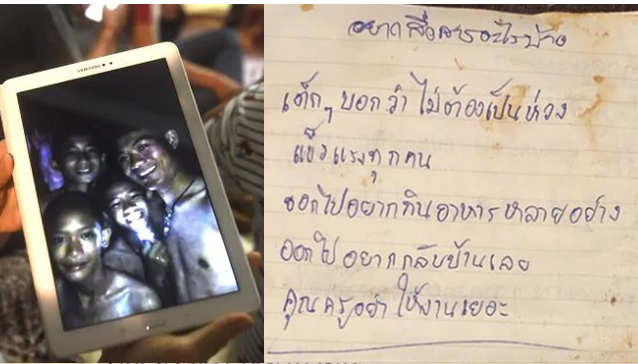 SAMSUNG
อยากสื่อสารอะไรบ้าง
เด็กๆ บอกว่า ไม่ต้องเป็นห่วง
แข็งแรงทุกคน
ออกไปอยากกินอาหารหลายอย่าง
ออกไปอยากกลับบ้านเลย
คุณครูอย่าให้งานเยอะ